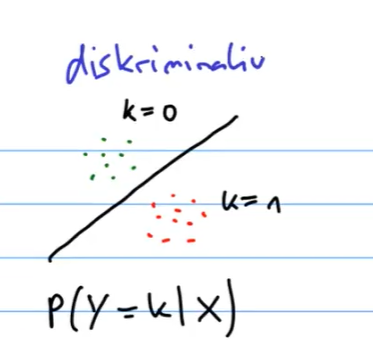 diskriminativ
k=0
k=1
P(Y=k|X)